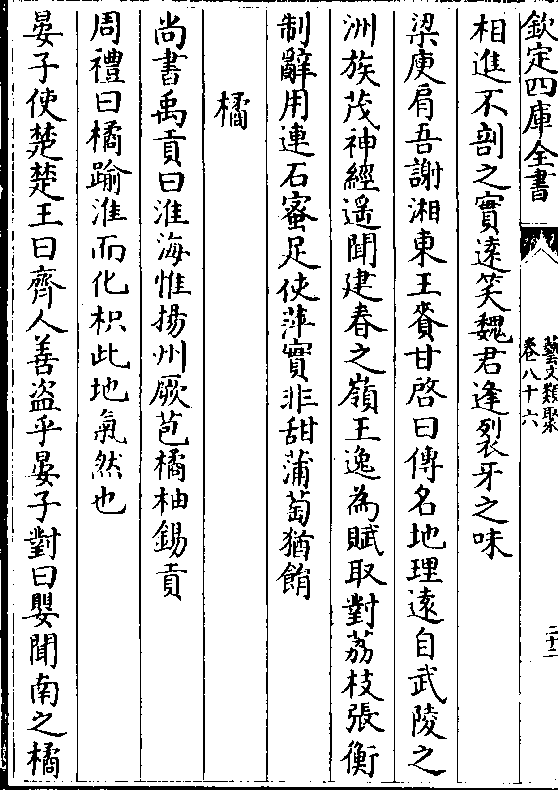 欽定四庫全書
藝文類聚
卷八十六
二十二
相進不剖之實遠笑魏君逢裂牙之味
梁庾肩吾謝湘東王賚甘啓曰傳名地理遠自武陵之
洲族茂神經遥聞建春之嶺王逸為賦取對荔枝張衡
制辭用連石蜜足使萍實非甜蒲萄猶餶
橘
尚書禹貢曰淮海惟揚州厥苞橘柚錫貢
周禮曰橘踰淮而化枳此地氣然也
晏子使楚楚王曰齊人善盗乎晏子對曰嬰聞南之橘